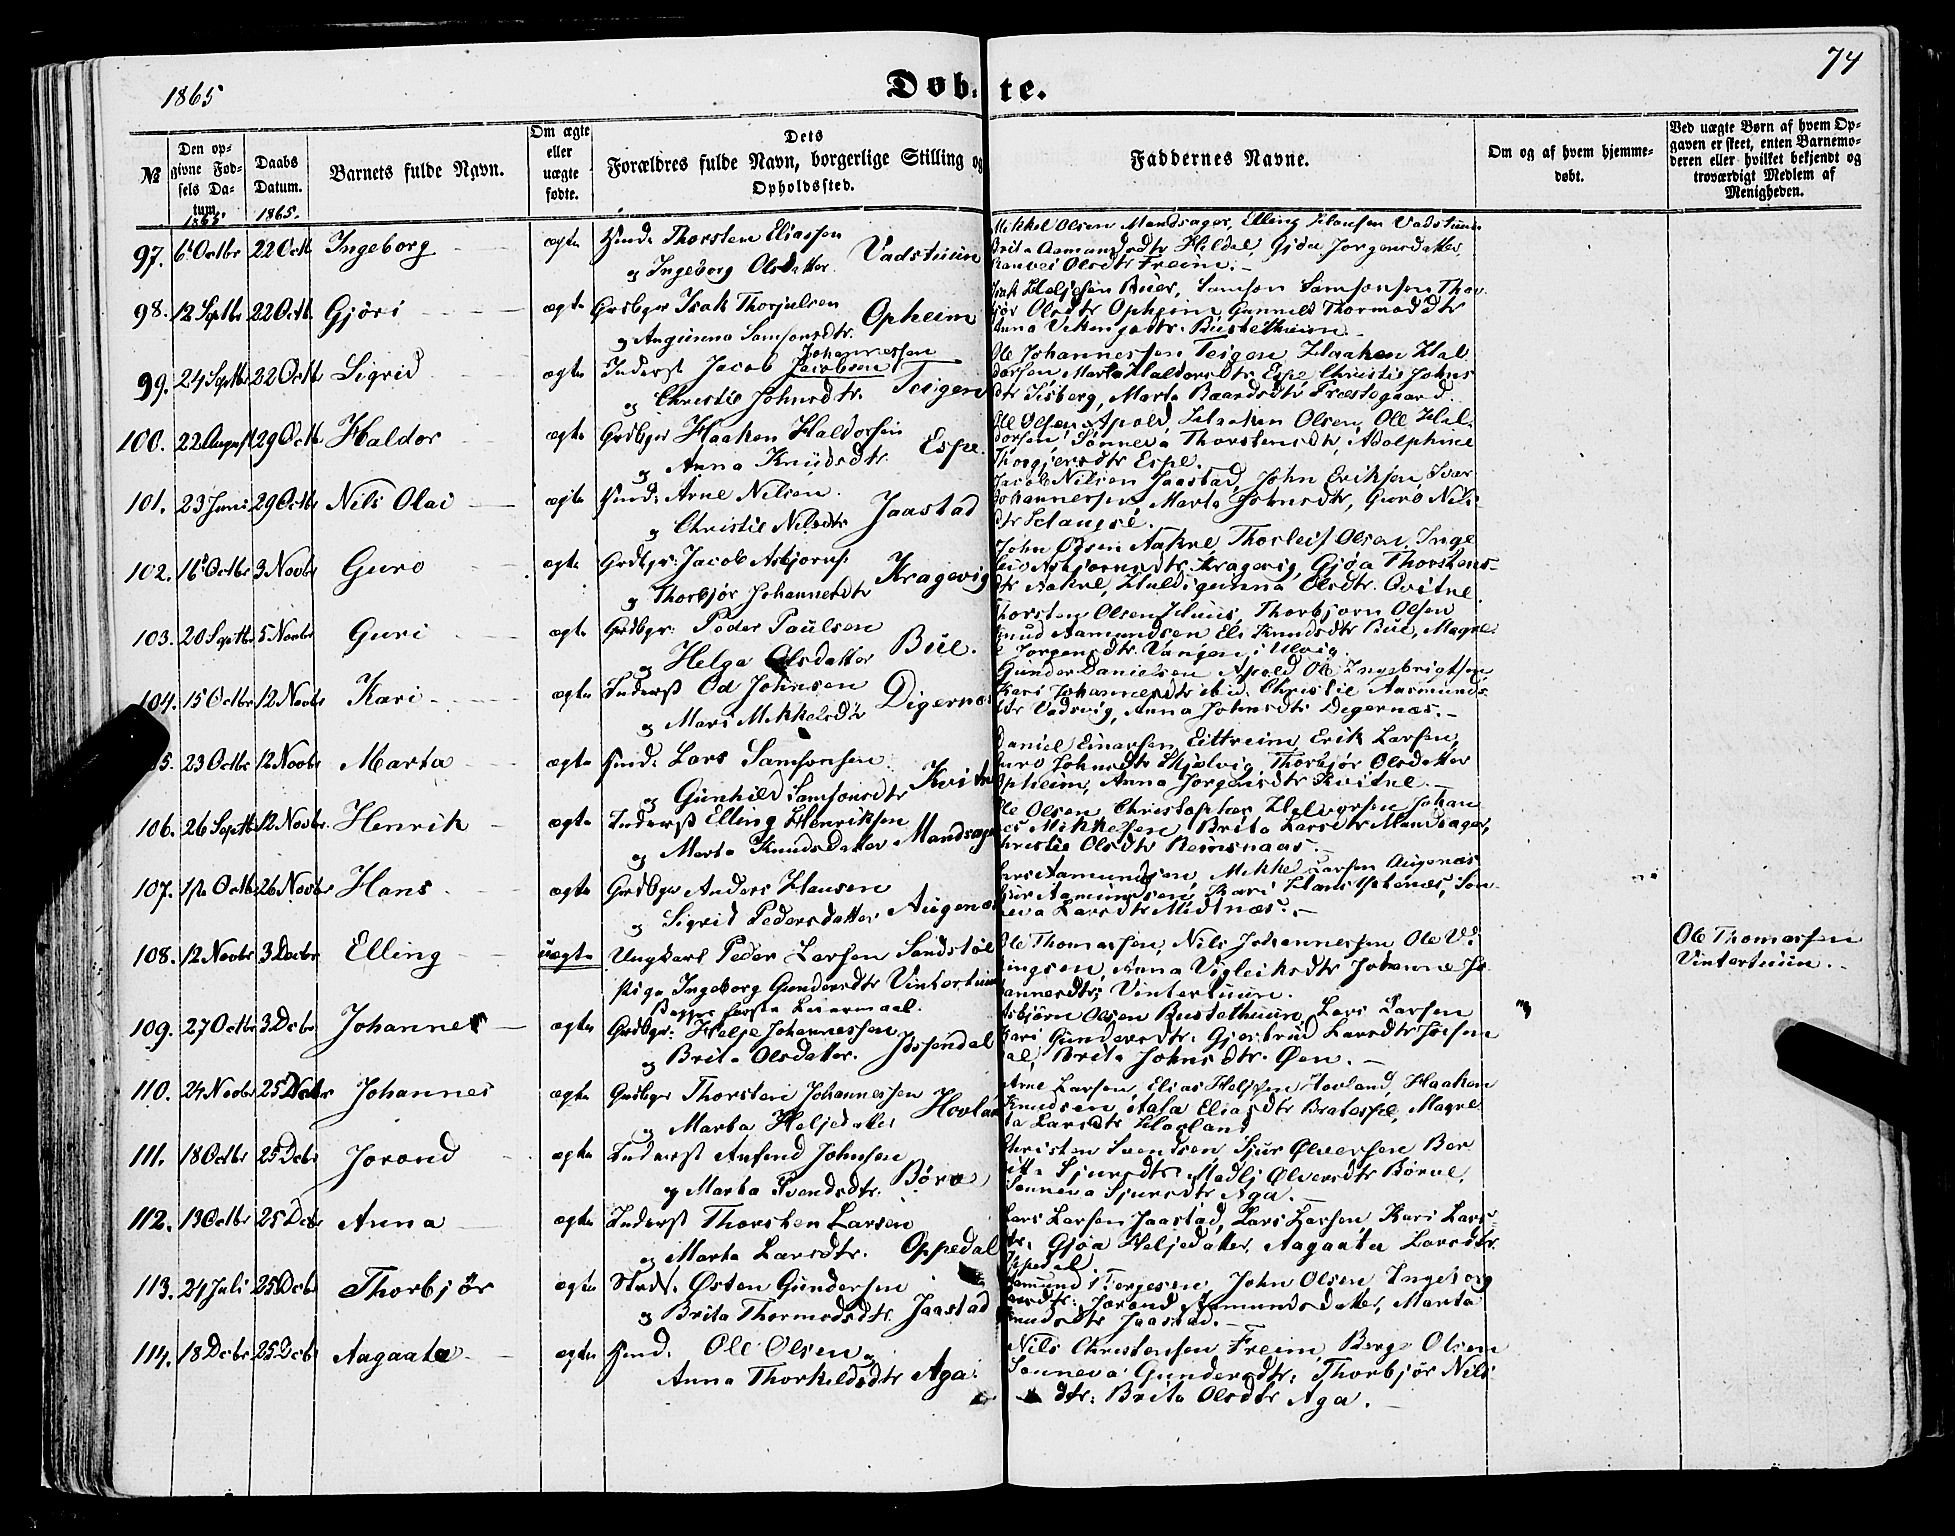 74
1865
Døb- te.
№
Den opgivne Fødsels Datum.
1865
Daabs Datum.
1865.
Barnets fulde Navn.
Om ægte eller uægte fødte.
Dets Forældres fulde Navn, borgerlige Stilling og Opholdssted.
Faddernes Navne.
Om og af hvem hjemmedøbt.
Ved uægte Børn af hvem Opgaven er skeet, enten Barnemoderen eller hvilket bekjendt og troværdigt Medlem af Menigheden.
97. 6 Octbr 22 Octb Ingeborg ægte Huusm: Thorsten Eliassen
og Ingeborg Olsdatter. Vadstuun
Mikkel Olsen Mandsager, Elling Hansen Vadstuun
Brita Aamundsdtr Hildal, Gjøa Jørgensdatter,
Ranvei Olsdtr Freim.
98. 12 Septbr 22 Octb. Gjøri ægte Grdbgr Isak Thorjulsen
og Angunna Samsonsdtr. Opheim
Isak Heljesen Buer, Samson Samsonsen Thor
bjør Olsdtr Opheim Gunnild Thormoddtr
Anna Vikingsdtr. Bustethuun
99. 24 Septbr 22 Octb Sigrid ægte Inderst Jacob Jacobsen
Johannessen
og Christie Johnsdtr. Teigen
Ole Johannessen Teigen Haaken Hal
dorsen, Marta Haldorsdtr Espe, Christie Johns
dtr Tisberg, Marta Baardsdtr Præstegaard.
100. 22 August 29 Octb Haldor ægte Grdbgr Haaken Haldorsen
og Anna Knudsdtr Espe.
Ole Olsen Apold, Haaken Olsen, Ole Hal
dorsen, Sønneva Thorstensdtr, Adolphine
Thorgjersdtr Espe.
101. 23 Juni 29 Octbr Nils Olai ægte Huusm: Arne Nilsen.
og Christie Nilsdtr Jaastad
Jacob Nilsen Jaastad, John Eriksen, Ivar
Johannessen, Marta Johnsdtr, Guro Nils
dtr
102. 16 Octbr 3 Novbr Guro ægte Grdbgr: Jacob Asbjørns.
og Thorbjør Johannesdtr Kragevig
John Olsen Aakre, Thorleif Olsen, Inge
leiv Asbjørnsdtr Kragevig, Gjøa Thorstens-
dtr Aakre, Huldigunna Olsdtr. Qvitne.
103. 20 Septbr 5 Novbr Guri ægte Grdbgr: Peder Paulsen
og Helga Olsdatter Bue.
Thorsten Olsen Huus, Thorbjørn Olsen
Knud Aamundsen Eli Knudsdtr Bue, Magre
te Jørgensdtr. Vangen i Ulvig.
104. 15 Octbr 12 Novbr Kari ægte Inderst Od Johnsen
og Mari Mikkelsdtr Digernæs
Gunder Danielsen Apold Ole Ingebrigtsen
Kari Johannesdtr ibid. Christie Aasmunds
dtr Vadsvig, Anna Johnsdtr Degernæs.
105. 23 Octbr 12 Novbr Marta ægte Huusm. Lars Samsonsen
og Gunhild Samsonsdtr Kvitne
Daniel Einarsen Eittreim Erik Larsen,
Guro Johnsdtr Skjælvig Thorbjør Olsdatter
Opheim, Anna Jørgensdtr Kvitne.
106. 26 Septbr 12 Novbr. Henrik ægte Inderst Elling Henriksen
og Marta Knudsdatter Mandsager
Ole Olsen, Christopher Halvorsen Johan
nes Mikkelsen, Brita Larsdtr Mandsager,
Christie Olsdtr Reinsnaas.
107. 12 Octbr 26 Novbr Hans ægte Grdbgr Anders Hansen
og Sigrid Pedersdatter Augenæs
Lars Aamundsen, Mikkel Larsen Augenæs
Sjur Aamundsen Kari Hans Søn
neva Larsdtr Midtnæs.
108. 12 Novbr 3 Decbr Elling uægte Ungkarl Peder Larsen Sandstøl
Pige Ingeborg Gundersdtr Vintertuun
Begges første Leiermaal.
Ole Thomassen, Nils Johannessen Ole Vi
kingsen, Anna Vigleiksdtr Johanne Jo
hannesdtr Vintertuun.
Ole Thomassen
Vintertuun.
109. 27 Octbr 3 Decbr Johannes ægte Grdbgr: Helje Johannessen
og Brita Olsdatter. Jøssendal
Asbjørn Olsen Bustethuun, Lars Larsen
Kari Gundersdtr. Gjertrud Larsdtr Jøssen
dal Brita Johnsdtr. Øen.
110. 24 Novbr 25 Decbr Johannes ægte Grdbgr Thorsten Johannessen
og Marta Heljedatter Hovland
Arne Larsen, Elias Heljesen Hovland, Haaken
Knudsen, Eliasdtr Bratespe, Magre
ta Larsdtr Hovland
111. 18 Octbr 25 Decbr Jorand ægte Inderst Anfind Johnsen
og Marta Svendsdtr. Børve
Christen Svendsen, Sjur Olversen Ber
Sjursdtr, Madli Olversdtr Børve,
Sønneva Sjursdtr Aga.
112. 13 Octbr 25 Decbr Anna ægte Inderst Thorsten Larsen
og Marta Larsdtr. Oppedal
Lars Larsen Jaastad, Lars Larsen, Kari Lars-
dtr. Gjøa Heljedatter, Aagaata Larsdtr.
Oppedal.
113. 24 Juli 25 Decbr Thorbjør ægte Strds. Østen Gundersen
og Brita Thormodsdtr. Jaastad
Aamund Torgesen, John Olsen Ingeborg
Jorand Aamundsdatter, Marta
Knudsdtr Jaastad.
114. 18 Decbr 25 Decbr Aagaata ægte Huusm. Ole Olsen og
Anna Thorkildsdtr Aga.
Nils Christensen Freim, Berge Olsen
Sønneva Gundersdtr, Thorbjør Nils
dtr: Brita Olsdtr Aga.